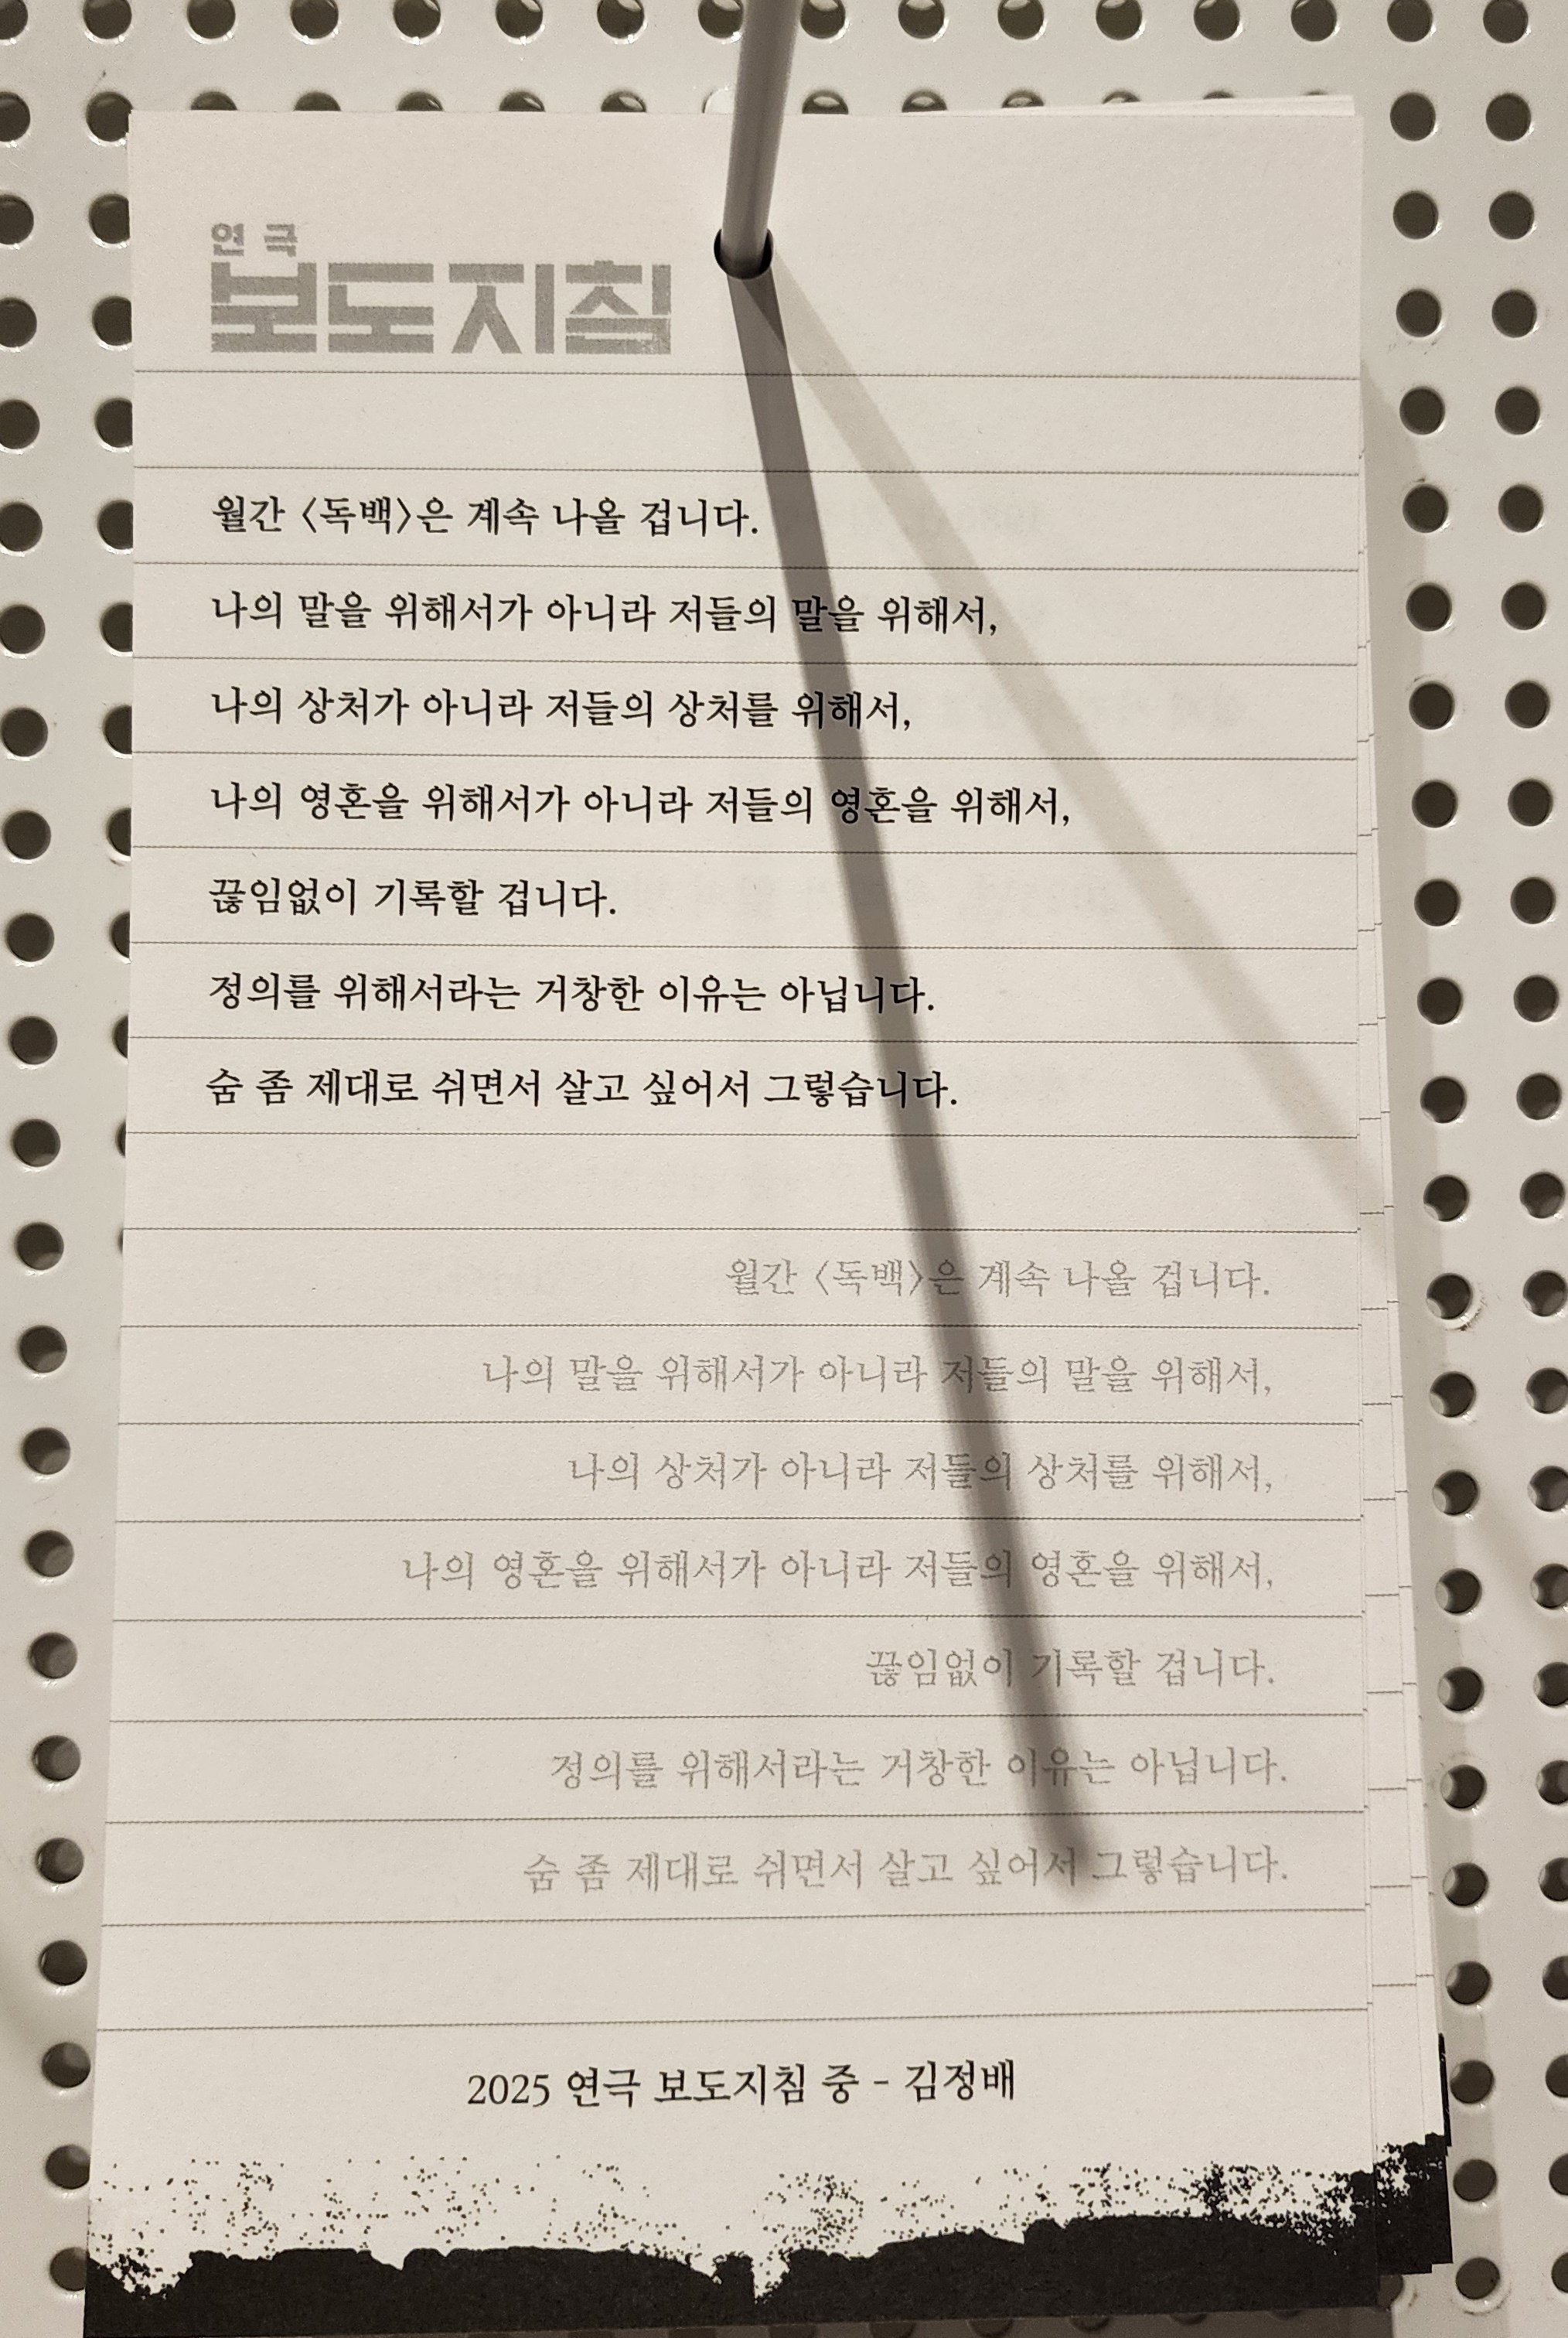 연극
보도지침
월간 〈독백〉은 계속 나올 겁니다.
나의 말을 위해서가 아니라 저들의 말을 위해서,
나의 상처가 아니라 저들의 상처를 위해서,
나의 영혼을 위해서가 아니라 저들의 영혼을 위해서,
끊임없이 기록할 겁니다.
정의를 위해서라는 거창한 이유는 아닙니다.
숨 좀 제대로 쉬면서 살고 싶어서 그렇습니다.
월간 〈독백〉은 계속 나올 겁니다.
나의 말을 위해서가 아니라 저들의 말을 위해서,
나의 상처가 아니라 저들의 상처를 위해서,
나의 영혼을 위해서가 아니라 저들의 영혼을 위해서,
끊임없이 기록할 겁니다.
정의를 위해서라는 거창한 이유는 아닙니다.
숨 좀 제대로 쉬면서 살고 싶어서 그렇습니다.
2025 연극 보도지침 중 - 김정배